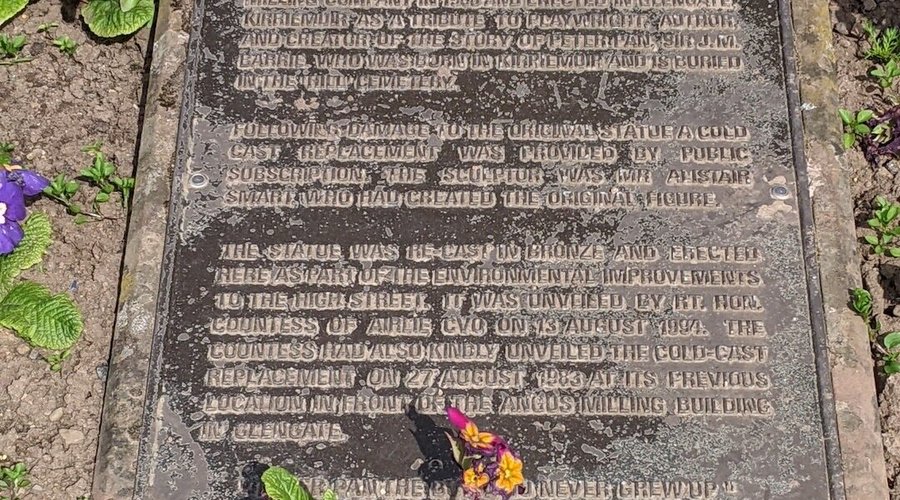 IN GLENGATE
KIRRIEMUIR AS A TRIBUTE TO PLAYWRIGHT, AUTHOR
AND CREATOR OF THE STORY OF PETER PAN, SIR J.M.
BARRIE, WHO WAS BORN IN KIRRIEMUIR AND IS BURIED
IN THE HILL CEMETERY.
FOLLOWING DAMAGE TO THE ORIGINAL STATUE A COLD
CAST REPLACEMENT WAS PROVIDED BY PUBLIC
SUBSCRIPTION. THE SCULPTOR WAS MR ALISTAIR
SMART, WHO HAD CREATED THE ORIGINAL FIGURE.
THE STATUE WAS RE-CAST IN BRONZE AND ERECTED
HERE AS PART OF THE ENVIRONMENTAL IMPROVEMENTS
TO THE HIGH STREET. IT WAS UNVEILED BY RT. HON.
COUNTESS OF AIRLIE CVO ON 13 AUGUST 1994. THE
COUNTESS HAD ALSO KINDLY UNVEILED THE COLD-CAST
REPLACEMENT ON 27 AUGUST 1983 AT ITS PREVIOUS
LOCATION IN FRONT OF THE ANGUS MILLING BUILDING
IN GLENGATE.
PAN THE NEVER GREW UP"